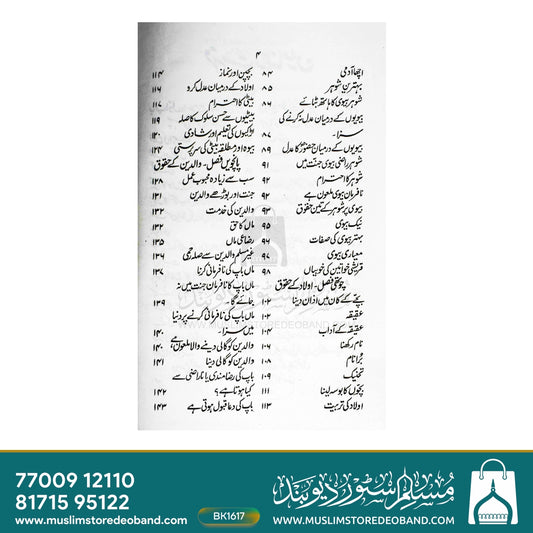 ۴
اچھا آدمی ۸۴
بہترین شوہر ۸۵
شوہر بیوی کا ہاتھ بٹائے ۸۶
بیویوں کے درمیان عدل نہ کرنے کی
سزا۔ ۸۷
بیویوں کے درمیان حضورؐ کا عدل ۸۹
شوہر راضی بیوی جنت میں ۹۱
شوہر کا احترام ۹۲
نافرمان بیوی ملعون ہے ۹۲
بیوی پر شوہر کے تین حقوق ۹۳
نیک بیوی ۹۵
بہتر بیوی کی صفات ۹۶
معیاری بیوی ۹۷
قریشی خواتین کی خوبیاں ۹۸
چوتھی فصل - اولاد کے حقوق
بچے کے کان میں اذان دینا ۱۰۲
عقیقہ ۱۰۲
عقیقہ کے آداب ۱۰۴
نام رکھنا ۱۰۶
بُرا نام ۱۰۸
تحنیک ۱۰۹
بچوں کا بوسہ لینا ۱۱۱
اولاد کی تربیت ۱۱۳
بچپن اور نماز ۱۱۴
اولاد کے درمیان عدل کرو ۱۱۶
بیٹی کا احترام ۱۱۷
بیٹیوں سے حسن سلوک کا صلہ ۱۱۹
لڑکیوں کی تعلیم اور شادی ۱۲۰
بیوہ اور مطلقہ بیٹی کی سرپرستی ۱۲۴
پانچویں فصل - والدین کے حقوق
سب سے زیادہ محبوب عمل ۱۲۸
جنت اور بوڑھے والدین ۱۳۱
والدین کی خدمت ۱۳۲
ماں کا حق ۱۳۲
رضاعی ماں ۱۳۵
غیر مسلم والدین سے صلہ رحمی ۱۳۶
ماں باپ کی نافرمانی کرنا ۱۳۷
ماں باپ کا نافرمان جنت میں نہ
جائے گا۔ ۱۳۹
ماں باپ کی نافرمانی کرنے پر دنیا
میں سزا۔ ۱۴۰
والدین کو گالی دینے والا ملعون ہے ۱۴۰
والدین کو گالی دینا ۱۴۱
باپ کی رضامندی یا ناراضی سے
کیا ہوتا ہے؟ ۱۴۲
باپ کی دعا قبول ہوتی ہے ۱۴۳
WWW.MUSLIMSTOREDEOBAND.COM
77009 12110
81715 95122
www.muslimstoredeoband.com
BK1617
مسلم اسٹور دیوبند
WWW.MUSLIMSTOREDEOBAND.COM